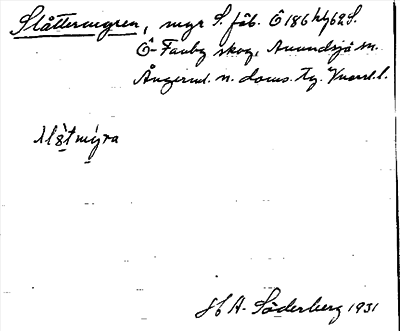 Slåttermyren, myr S. fäb. Ö 186 hy 62 S.
Ö-Fanby skog, Anundsjö sn.
Ångerml. n. doms. Tg. Vnorrl. l.
slåtmýra
H A. Söderberg 1931